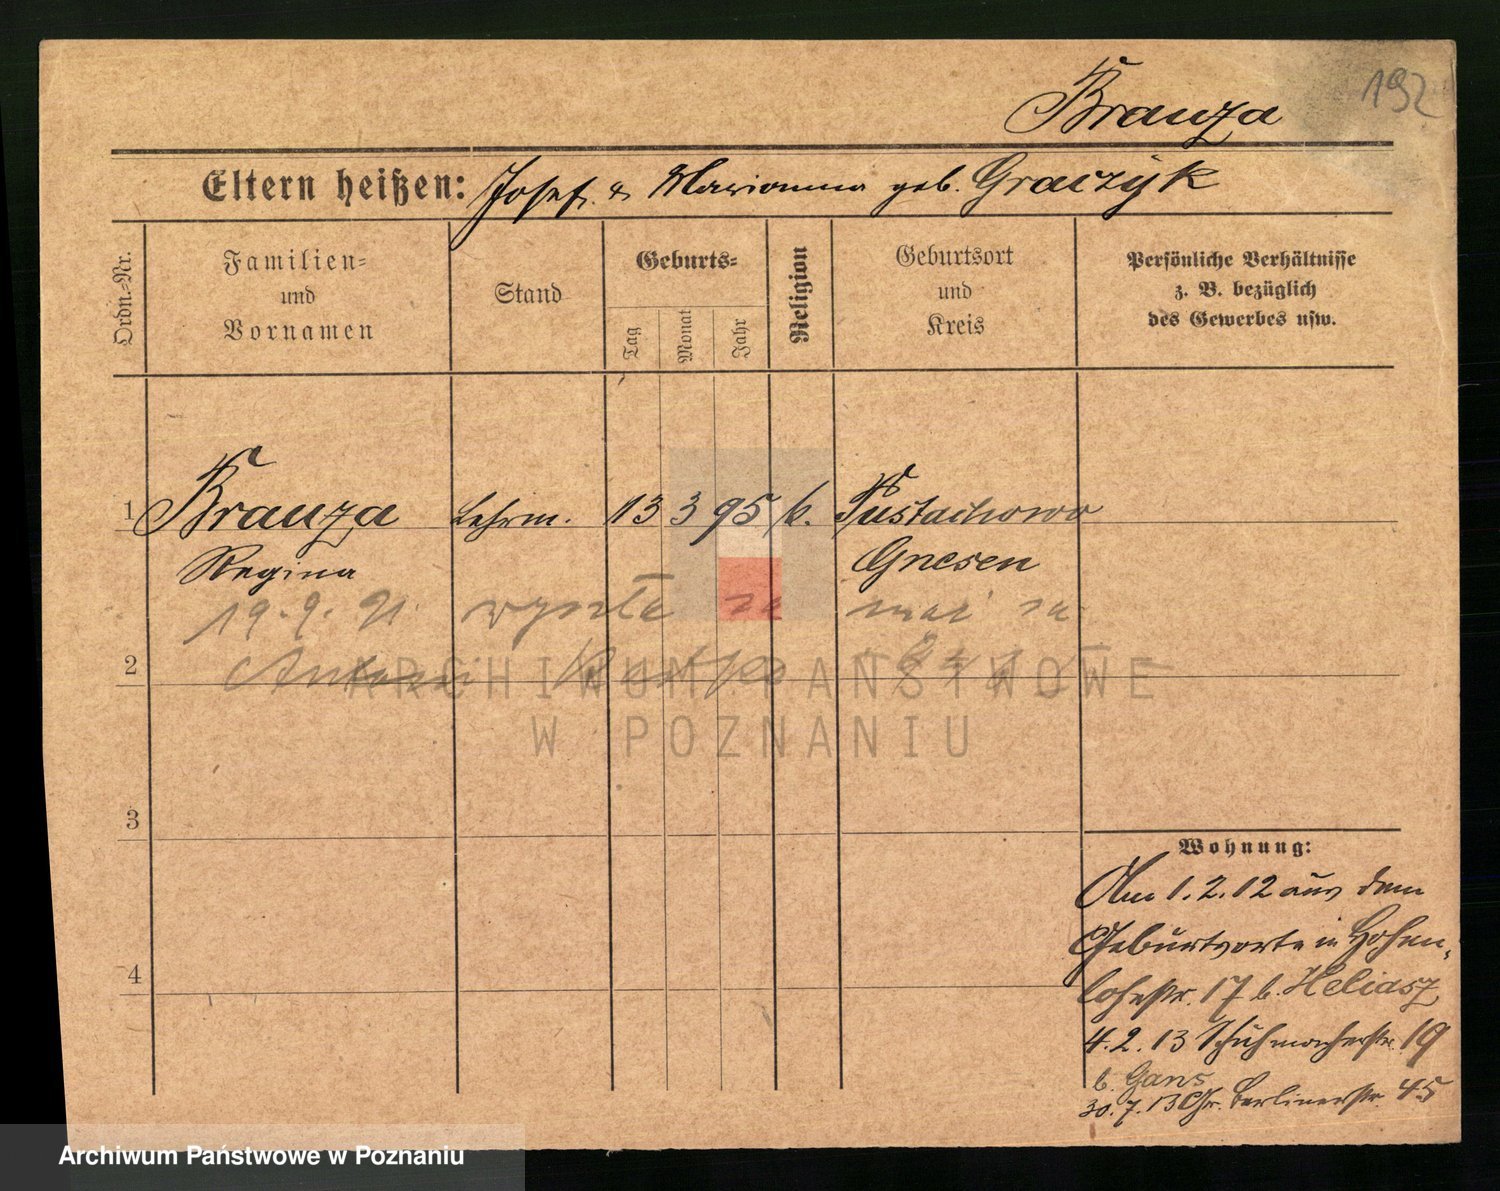 192
Branza
Eltern heißen: Josef. & Marianna geb. Graczÿk
Ordn.-Nr.
Familien-
und
Vornamen
Stand
Geburts-
Tag
Monat
Jahr
Religion
Geburtsort
und
Kreis
Persönliche Verhältnisse
z. B. bezüglich
des Gewerbes usw.
1 Branza 13 3 95 k. Pustachowo
Regina Gnesen
19.9. 21. wyszła za mąż za
2 Antoni
3
4
Wohnung:
Am 1.2.12 aus dem
Geburtsorte in Hohen-
lohestr. 17 b. Heliasz
4.2.13 Schuhmacherstr. 19
b. Gans
30.7.13 Gr. Berlinerstr. 45
ARCHIWUM PAŃSTWOWE
W POZNANIU
Archiwum Państwowe w Poznaniu